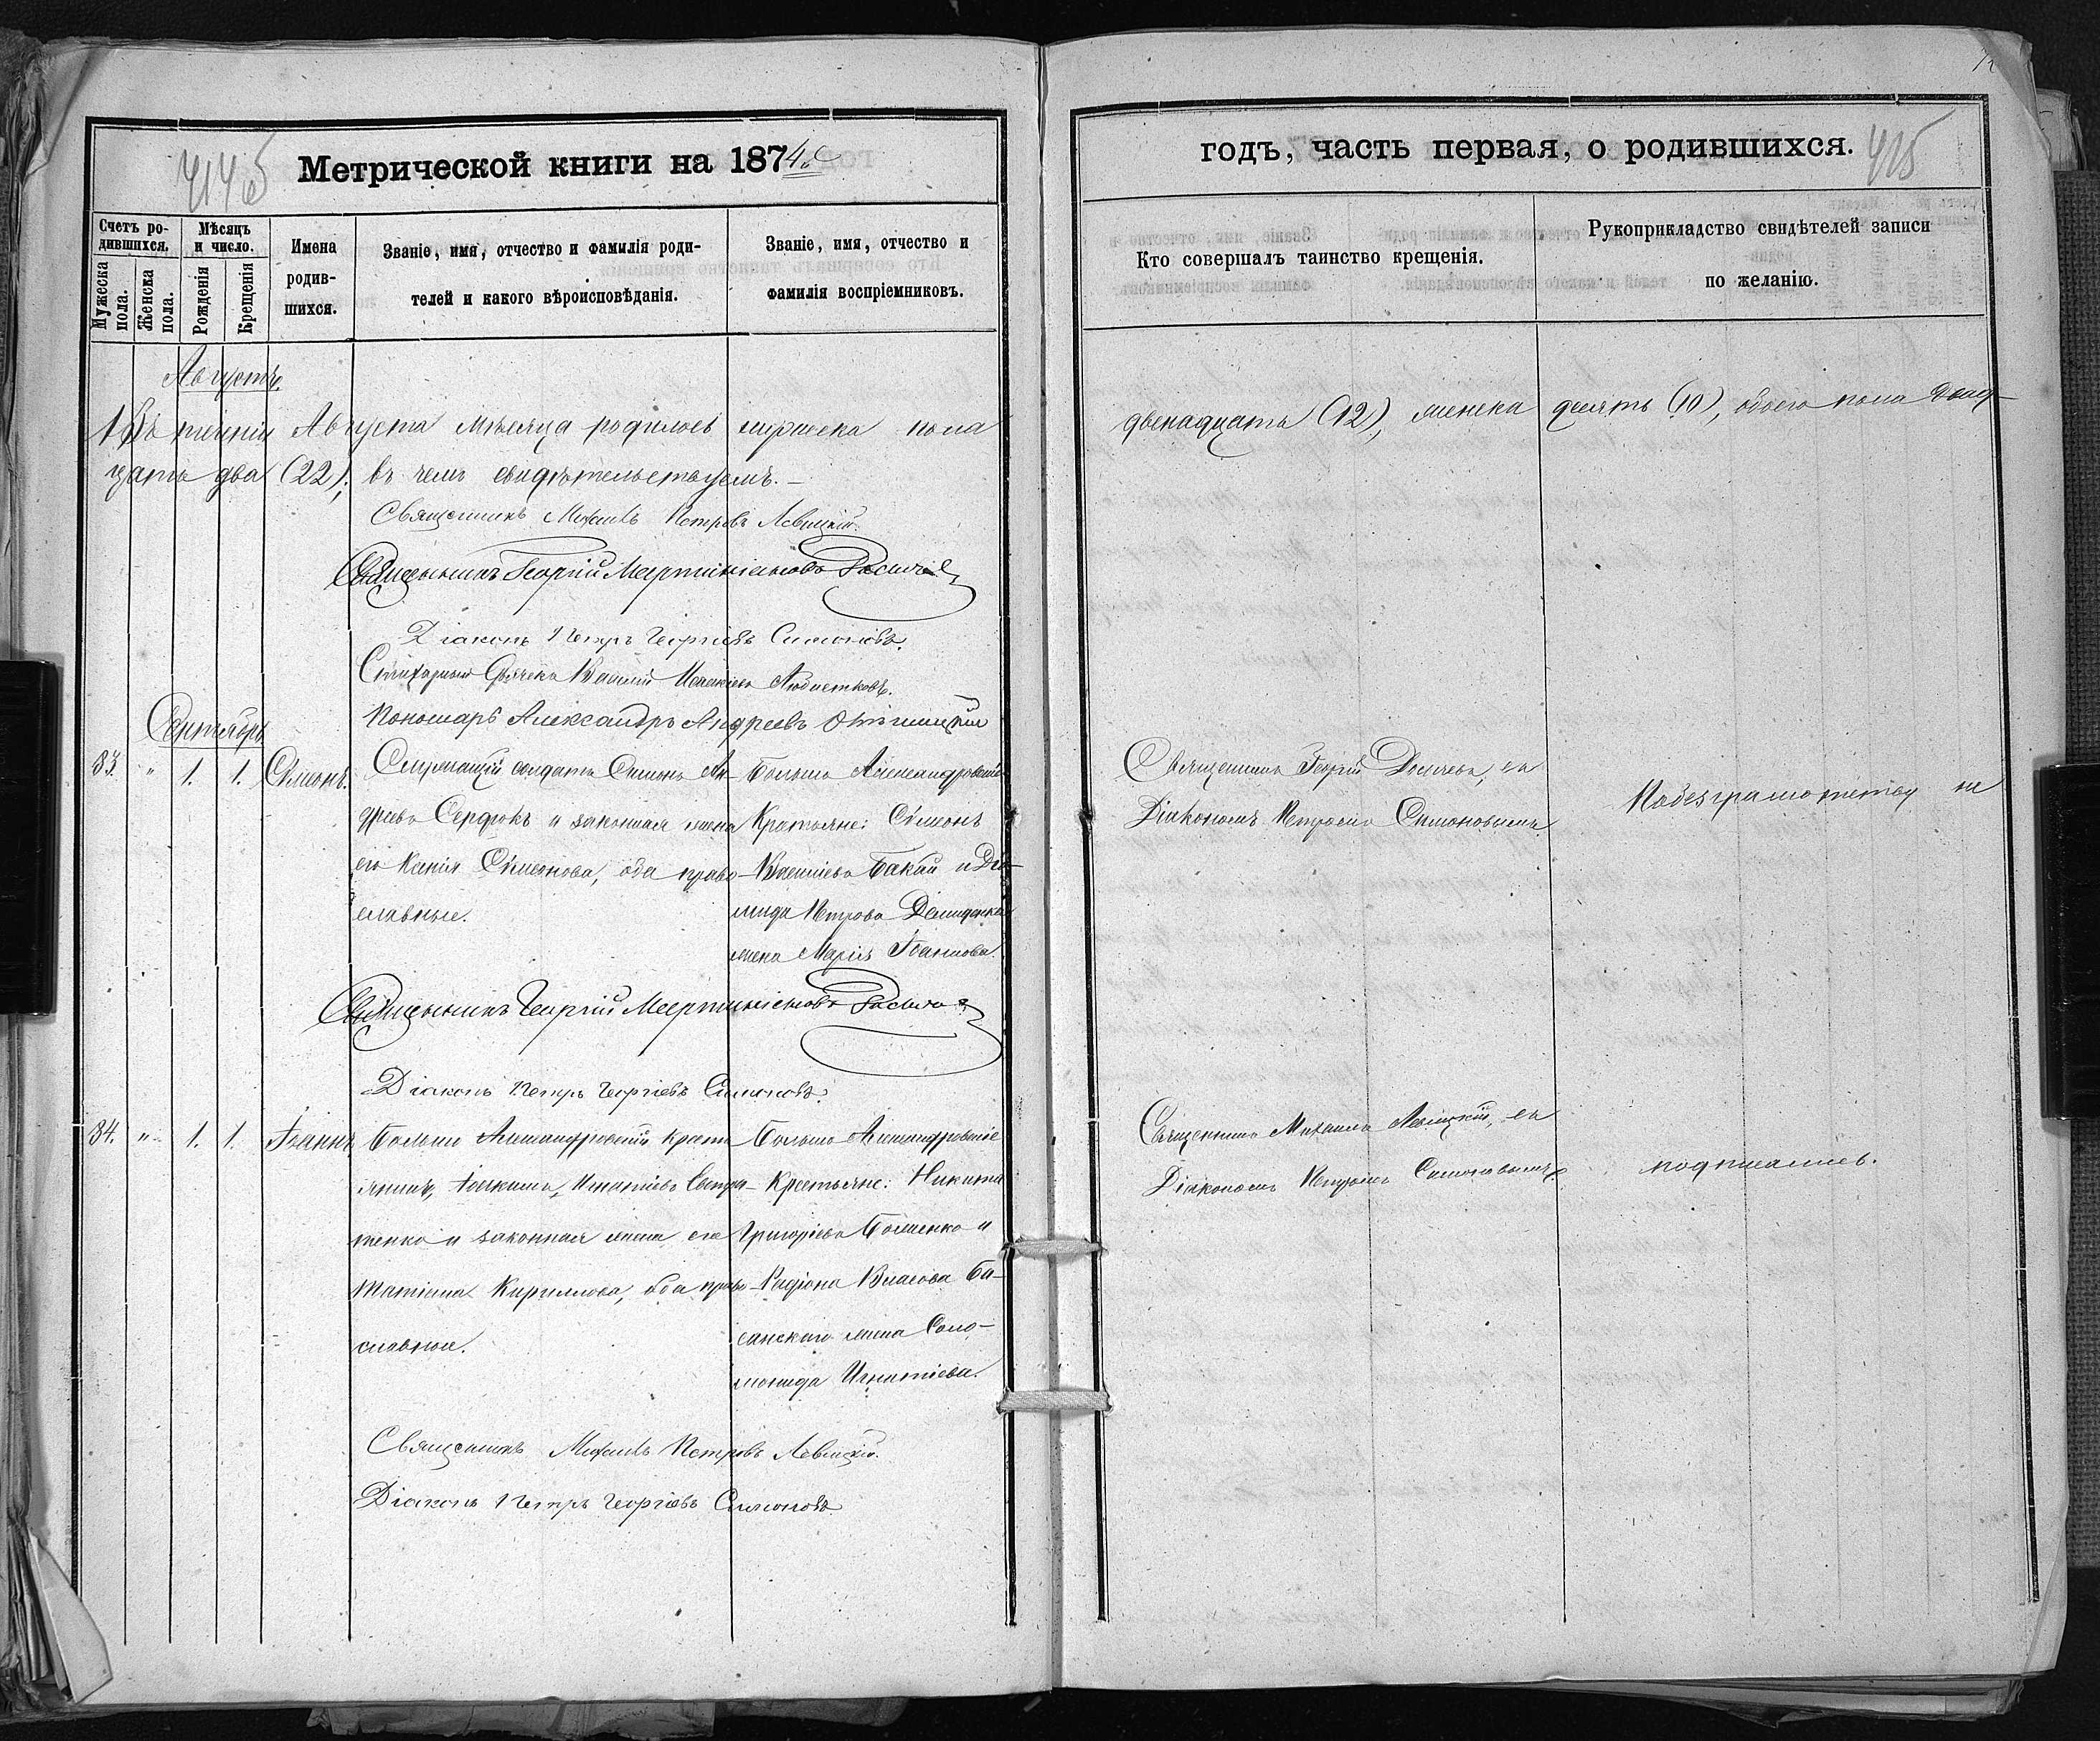 Метрической книги на 1874й
Счетъ ро-
дившихся.
Мужеска
пола.
Женска
пола.
Мѣсяцъ
и число.
Рожденія
Крещенія
Имена
родив-
шихся.
Званіе, имя, отчество и фамилія роди-
телей и какого вѣроисповѣданія.
Званіе, имя, отчество и
фамилія воспріемниковъ.
Августъ.
Въ теченіи Августа мѣсяца родилось мужеска пола
цать два (22); въ чемъ свидѣтельствуемъ.—
Священникъ Михаилъ Петровъ Левицкій.
Священникъ Георгій Мартиніановъ
Діаконъ Петръ Георгіевъ Симоновъ.
Стихарный Василій
Пономарь Александръ Андреевъ
Сентябрь
83. " 1. 1. Симонъ.
Служащій солдатъ Симонъ Ан-
дреевъ Сердюкъ и законная жена
его Ксенія Симонова, оба право-
славные.
Больше Александровскіе
Крестьяне: Симонъ
Василіевъ Бакай и Діо-
мида Петрова Демиденка
жена Марія Іванова.
Священникъ Георгій Мартиніановъ
Діаконъ Петръ Георгіевъ Симоновъ.
84. " 1. 1. Іваннъ.
Больше Александровскій крестья
янинъ, Іоакимъ Игнатіевъ
тенко и законная жена его
Татіана Кириллова, оба право-
славные.
Больше Александровскіе
Крестьяне: Никита
Григоріевъ и
Радіона Власова Ба-
санскаго жена Соло-
монида Игнатіева.
Священникъ Михаилъ Петровъ Левицкій.
Діаконъ Петръ Георгіевъ Симоновъ
годъ, часть первая, о родившихся.
415
Кто совершалъ таинство крещенія.
Рукоприкладство свидѣтелей записи
по желанію.
двенадцать (12), женска десять (10), обоего пола двад-
Священникъ Георгій съ
Діакономъ Петромъ Симоновымъ.
По безграмотству не
Священникъ Михаилъ Левицкій, съ
Діакономъ Петромъ Симоновымъ.
подписались.